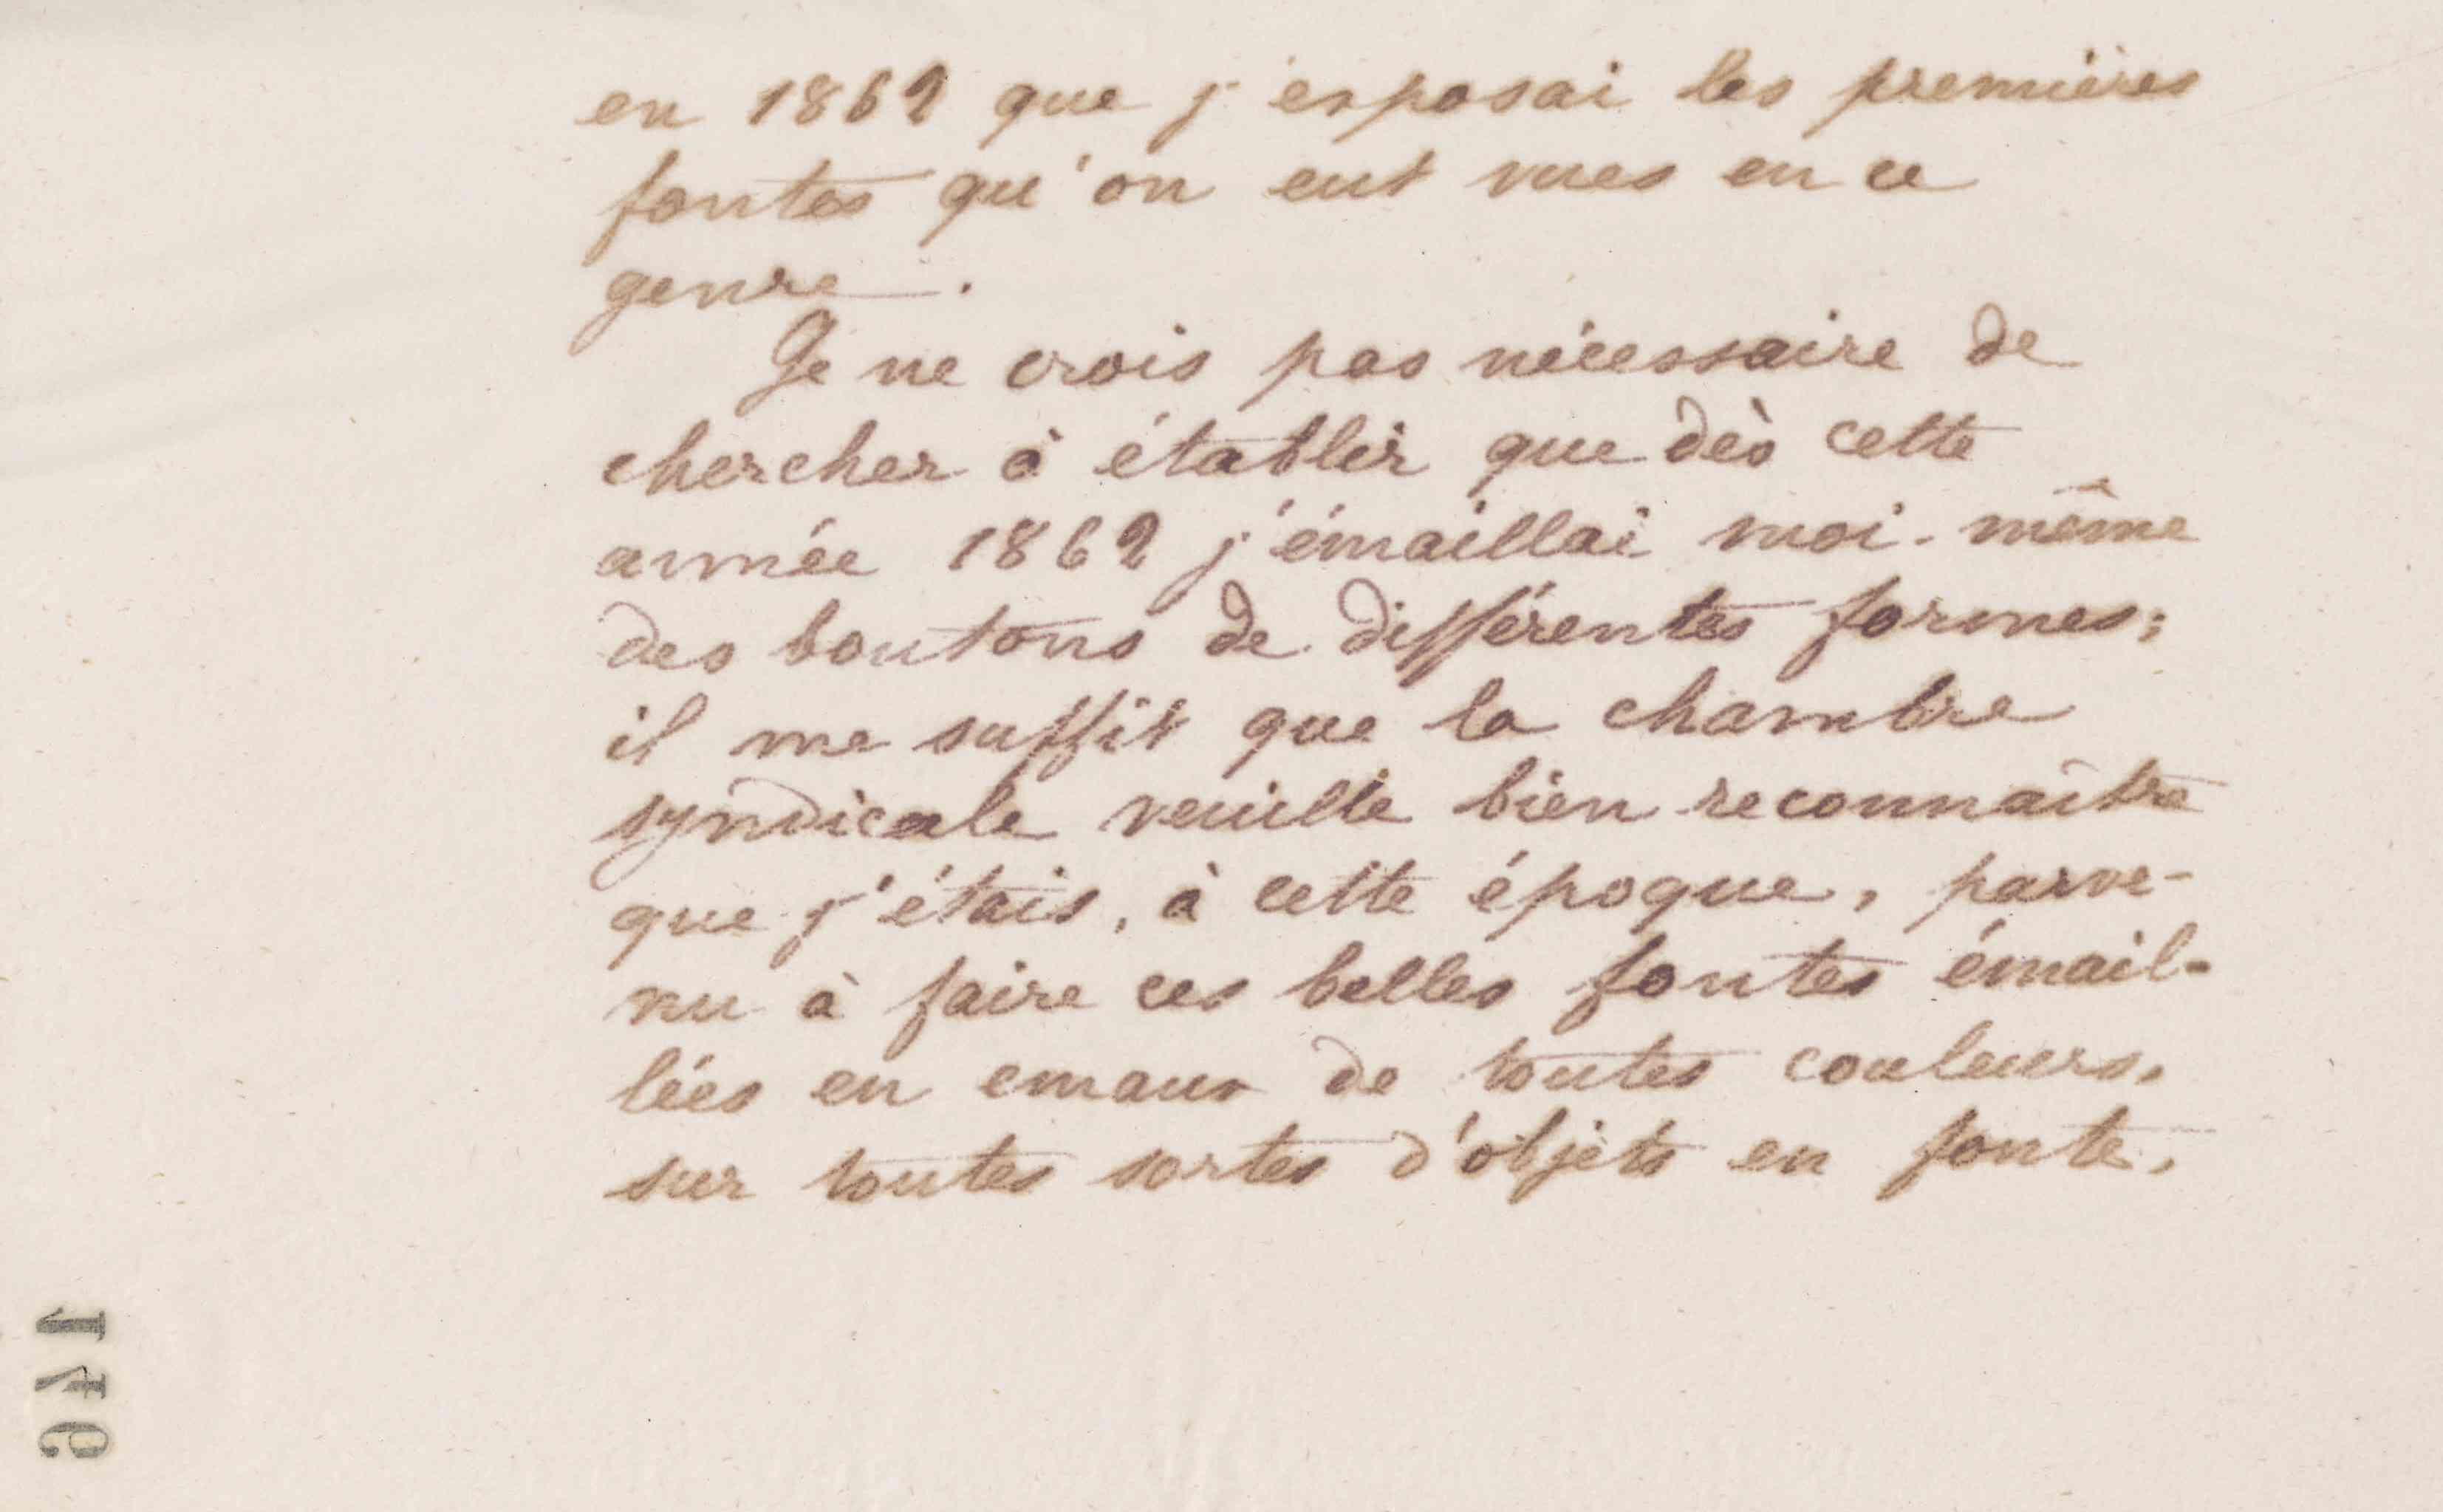 en 1862 que j'exposai les premières
fontes qu'on eut vues en ce
genre.
Je ne crois pas nécessaire de
chercher à établir que dès cette
année 1862 j'émaillai moi-même
des boutons de différentes formes;
il me suffit que la chambre
syndicale veuille bien reconnaître
que j'étais, à cette époque, parve-
nu à faire ces belles fontes émail-
lées en emaux de toutes couleurs,
sur toutes sortes d'objets en fonte,